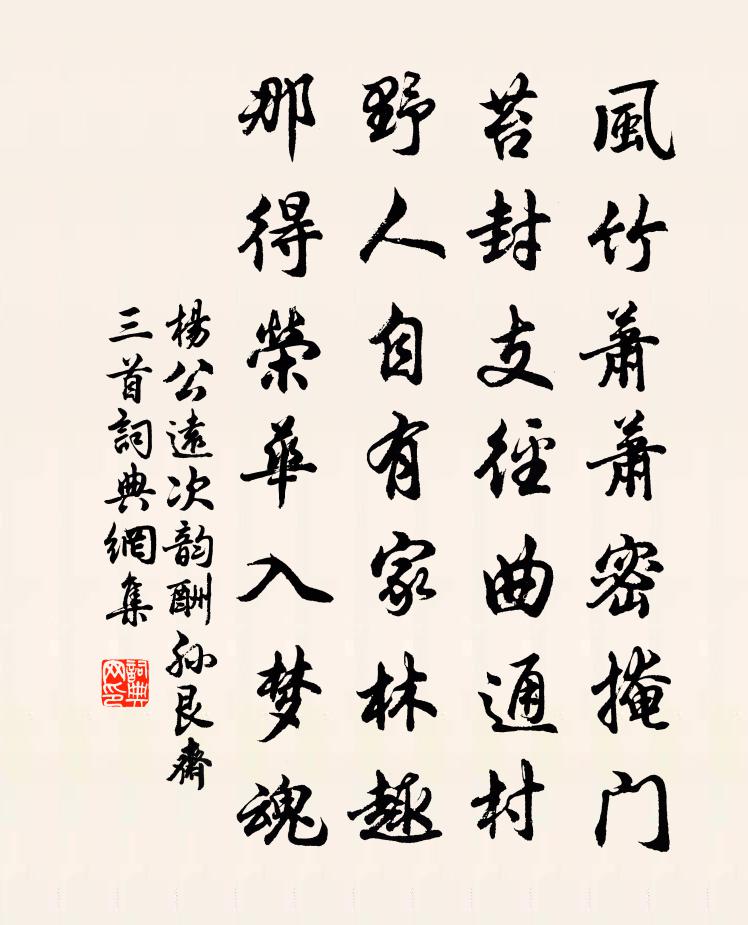 風竹蕭蕭密掩门
苔封支徑曲通村
野人自有家林趣
那得榮華入梦魂
楊公遠次韵酬孙艮齋
三首詞典網集
詞典网印